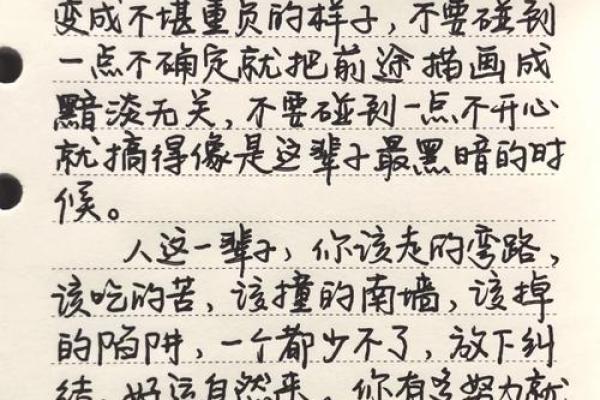 变成不堪重负的样子，不要碰到
一点不确定就把前途描画成
黯淡无关，不要碰到一点不开心
就搞得像是这辈子最黑暗的时
候。
人这一辈子，你该走的弯路，
该吃的苦，该撞的南墙，该掉
的陷阱，一个都少不了，放下纠
结，好运自然来。你有多努力就